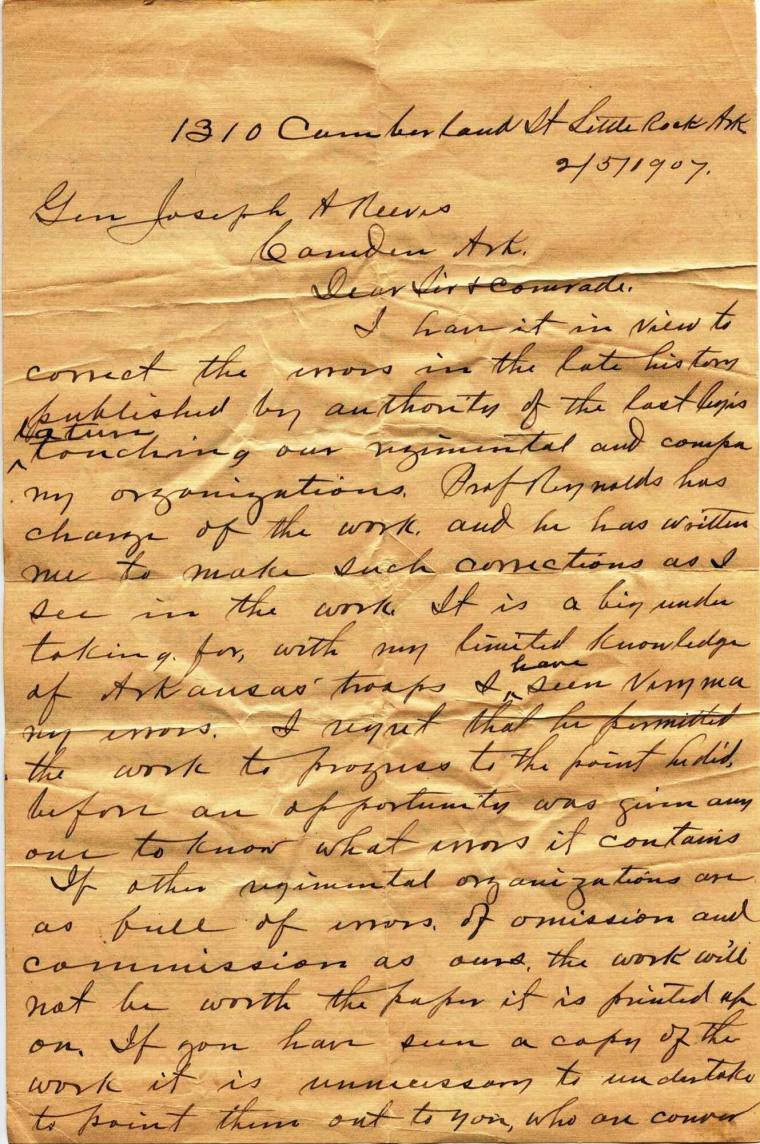 1310 Cumberland St Little Rock Ark
2/5/1907.
Gen Joseph A Reeves
Camden Ark.
Dear Sir & Comrade.
I have it in view to
correct the errors in the late history
published by authority of the last legis
lature
touching our regimental and compa
ny organizations. Prof Reynolds has
charge of the work. and he has written
me to make such corrections as I
see in the work. It is a big under
taking. for, with my limited knowledge
of Arkansas' troops I have seen very ma
ny errors. I regret that he permitted
the work to progress to the point he did,
before an opportunity was given any
one to know what errors it contains
If other regimental organizations are
as full of errors. of omission and
commission as ours, the work will
not be worth the paper it is printed up
on. If you have seen a copy of the
work it is unnecessary to undertake
to point them out to you, who are conver